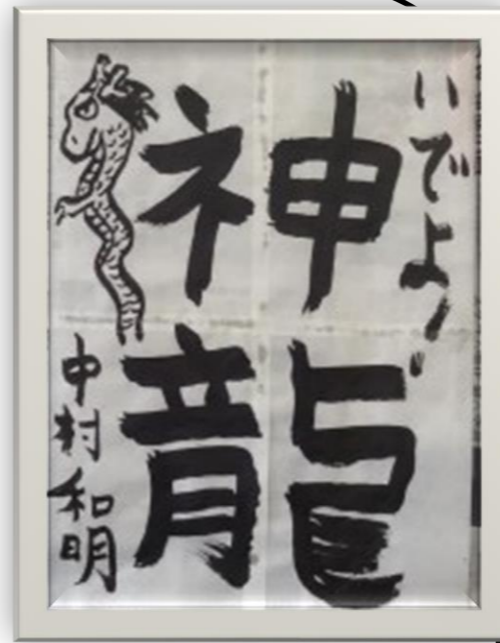 いでよ!
神龍
中村和明